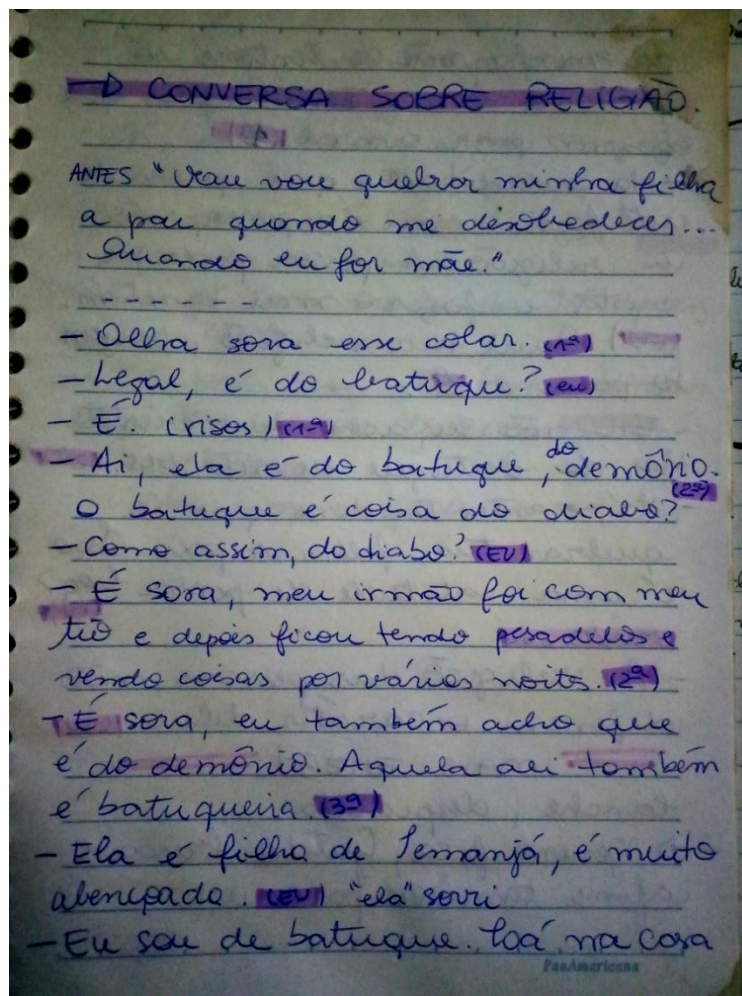 → CONVERSA SOBRE RELIGIÃO.
ANTES "vou quebrar minha filha
a pau quando me desobedecer...
Quando eu for mãe."
- - - - - -
- Olha sora esse colar. (1ª)
- Legal, é do batuque? (eu)
- É. (risos) (1ª)
- Ai, ela é do batuque, do demônio.
O batuque é coisa do diabo? (2ª)
- Como assim, do diabo? (EU)
- É sora, meu irmão foi com meu
tio e depois ficou tendo pesadelos e
vendo coisas por várias noites. (2ª)
- É sora, eu também acho que
é do demônio. Aquela ali também
é batuqueira. (3ª)
- Ela é filha de Iemanjá, é muito
abençoada. (EU) "ela" sorri
- Eu sou de batuque. Lá na casa
PanAmericana